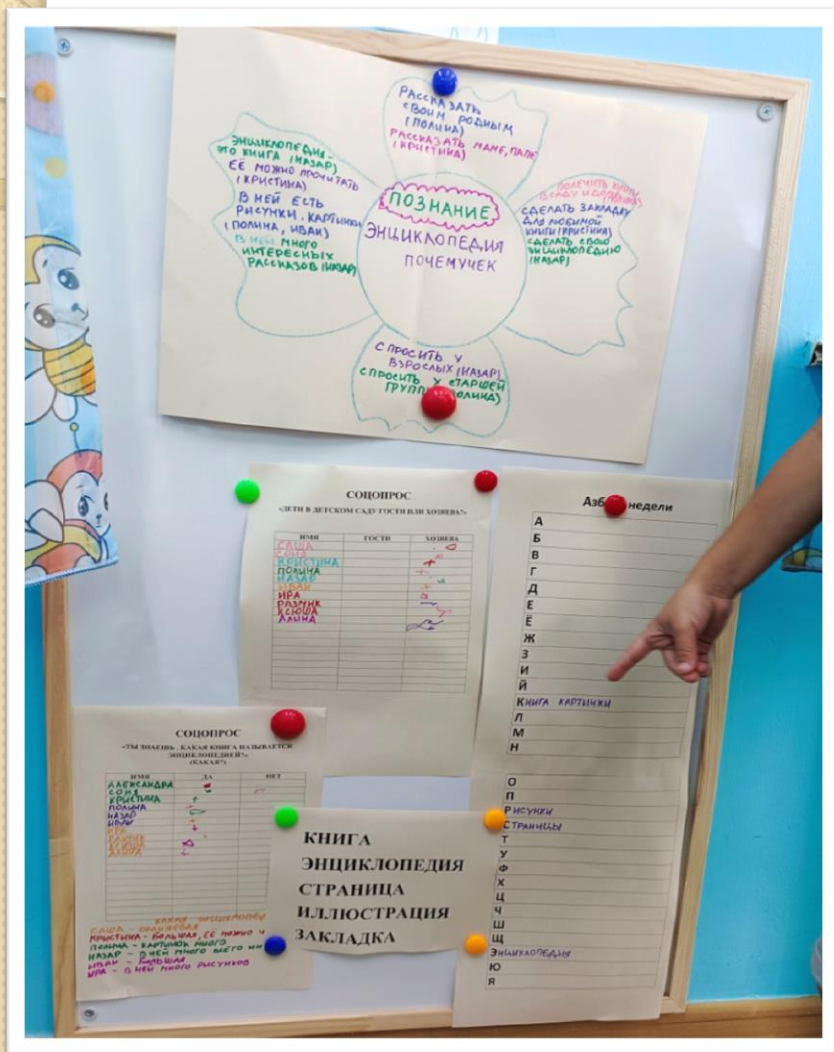 РАССКАЗАТЬ
СВОИМ РОДНЫМ
(ПОЛИНА)
РАССКАЗАТЬ МАМЕ, ПАПЕ
(КРИСТИНА)
ЭНЦИКЛОПЕДИЯ -
ЭТО КНИГА (НАЗАР)
ЕЁ МОЖНО ПРОЧИТАТЬ
(КРИСТИНА)
В НЕЙ ЕСТЬ
РИСУНКИ, КАРТИНКИ
(ПОЛИНА, ИВАН)
В НЕЙ МНОГО
ИНТЕРЕСНЫХ
РАССКАЗОВ (НАЗАР)
ПОЗНАНИЕ
ЭНЦИКЛОПЕДИЯ
ПОЧЕМУЧЕК
КНИГИ
СДЕЛАТЬ ЗАКЛАДКУ
ДЛЯ ЛЮБИМОЙ
КНИГИ (КРИСТИНА)
СДЕЛАТЬ СВОЮ
ЭНЦИКЛОПЕДИЮ
(НАЗАР)
СПРОСИТЬ У
ВЗРОСЛЫХ (НАЗАР)
СПРОСИТЬ У СТАРШЕЙ
СОЦОПРОС
«ДЕТИ В ДЕТСКОМ САДУ ГОСТИ ИЛИ ХОЗЯЕВА?»
ИМЯ ГОСТИ ХОЗЯЕВА
САША
СОНЯ
КРИСТИНА
ПОЛИНА
НАЗАР
ИВАН
ИРА
РАЗМИК
КСЮША
АЛИНА
недели
А
Б
В
Г
Д
Е
Ё
Ж
З
И
Й
КНИГА КАРТИНКИ
Л
М
Н
О
П
РИСУНКИ
СТРАНИЦЫ
Т
У
Ф
Х
Ц
Ч
Ш
Щ
ЭНЦИКЛОПЕДИЯ
Ю
Я
СОЦОПРОС
«ТЫ ЗНАЕШЬ, КАКАЯ КНИГА НАЗЫВАЕТСЯ
ЭНЦИКЛОПЕДИЕЙ?»
(КАКАЯ?)
ИМЯ ДА НЕТ
АЛЕКСАНДРА
СОНЯ
КРИСТИНА
ПОЛИНА
НАЗАР
ИВАН
ИРА
РАЗМИК
КСЮША
КАКАЯ
САША - ОРАНЖЕВАЯ
КРИСТИНА - БОЛЬШАЯ, ЕЁ МОЖНО Ч
ПОЛИНА - КАРТИНОК МНОГО
НАЗАР - В НЕЙ МНОГО ВСЕГО ИН
ИВАН - БОЛЬШАЯ
ИРА - В НЕЙ МНОГО РИСУНКОВ
КНИГА
ЭНЦИКЛОПЕДИЯ
СТРАНИЦА
ИЛЛЮСТРАЦИЯ
ЗАКЛАДКА